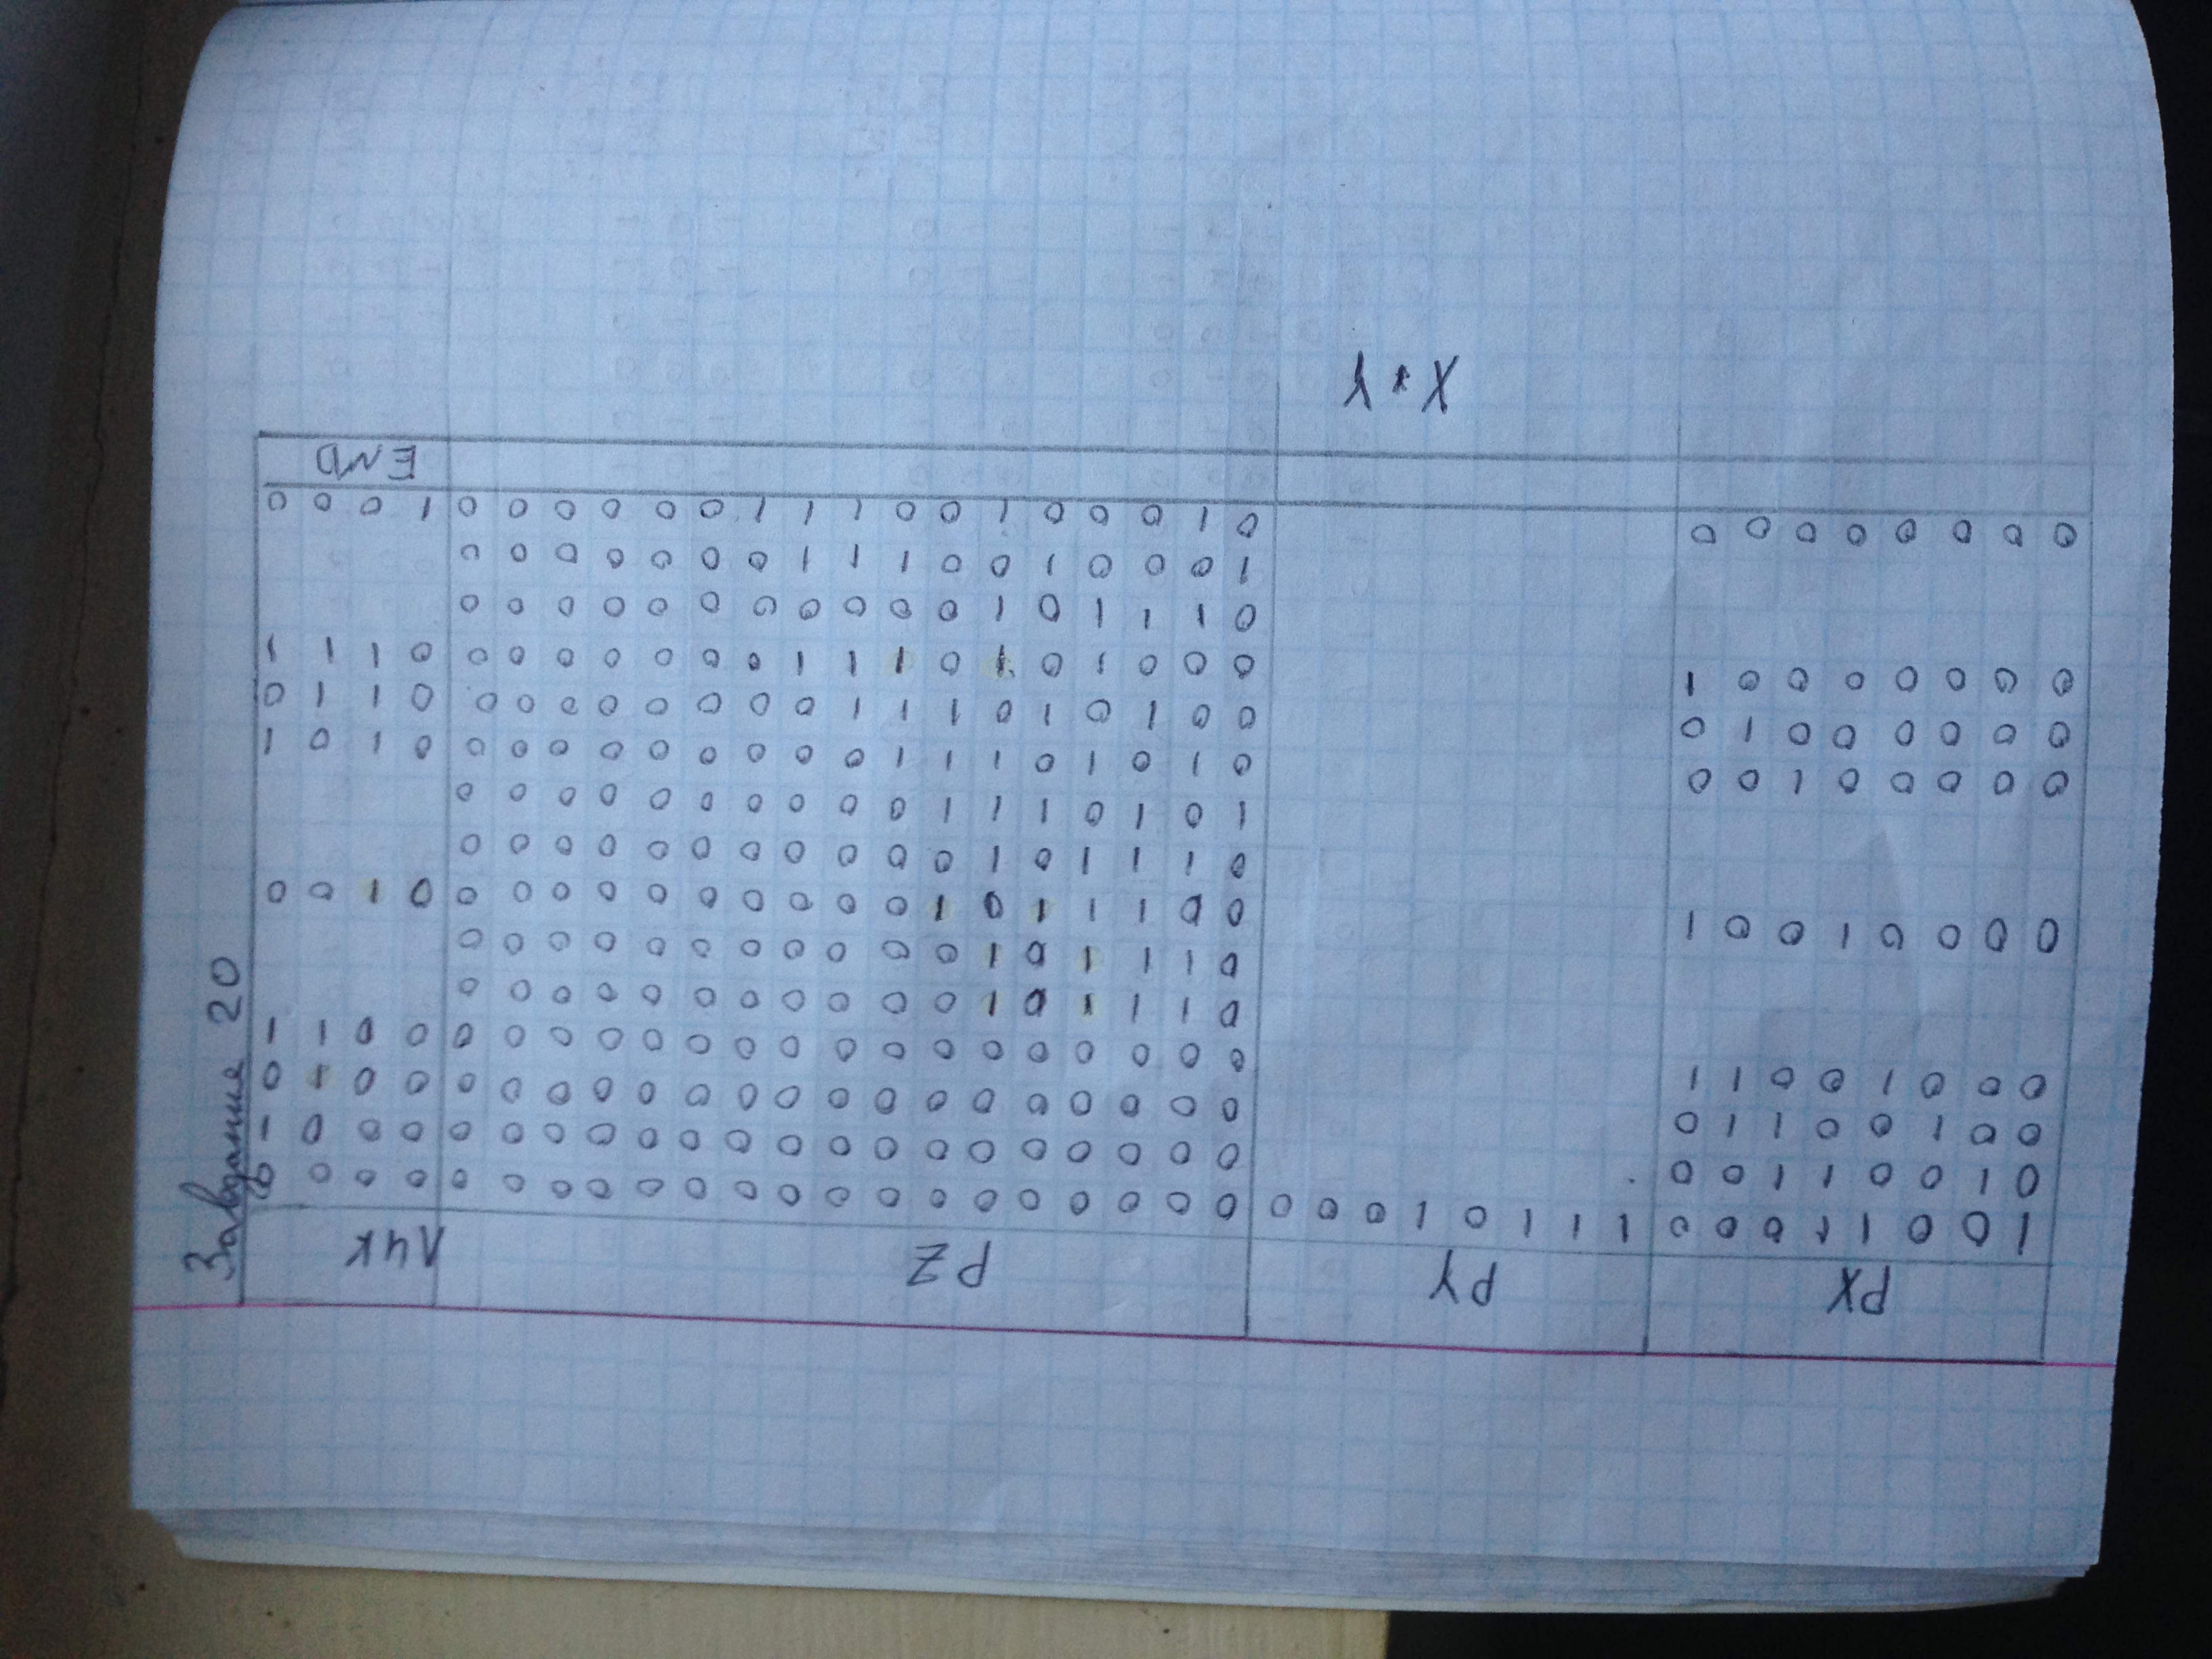 Завдание 20
PX PY PZ ЛЧК
1 0 0 1 1 0 0 0 1 1 1 0 1 0 0 0 0 0 0 0 0 0 0 0 0 0 0 0 0 0 0 0 0 0 0 0 0
0 1 0 0 1 1 0 0 0 0 0 0 0 0 0 0 0 0 0 0 0 0 0 0 0 0 0 0 1
0 0 1 0 0 1 1 0 0 0 0 0 0 0 0 0 0 0 0 0 0 0 0 0 0 0 0 1 0
0 0 0 1 0 0 1 1 0 0 0 0 0 0 0 0 0 0 0 0 0 0 0 0 0 0 0 1 1
0 1 1 1 0 1 0 0 0 0 0 0 0 0 0 0 0
0 1 1 1 0 1 0 0 0 0 0 0 0 0 0 0 0
0 0 0 0 1 0 0 1 0 0 1 1 1 0 1 0 0 0 0 0 0 0 0 0 0 0 1 0 0
0 1 1 1 0 1 0 0 0 0 0 0 0 0 0 0 0
1 0 1 0 1 1 1 0 0 0 0 0 0 0 0 0 0
0 0 0 0 0 1 0 0 0 1 0 1 0 1 1 1 0 0 0 0 0 0 0 0 0 0 1 0 1
0 0 0 0 0 0 1 0 0 0 1 0 1 0 1 1 1 0 0 0 0 0 0 0 0 0 1 1 0
0 0 0 0 0 0 0 1 0 0 0 1 0 1 0 1 1 1 0 0 0 0 0 0 0 0 1 1 1
0 1 1 1 0 1 0 0 0 0 0 0 0 0 0 0 0
1 0 0 0 1 0 0 1 1 1 0 0 0 0 0 0 0
0 0 0 0 0 0 0 0 0 1 0 0 0 1 0 0 1 1 1 0 0 0 0 0 0 1 0 0 0
END
X*Y